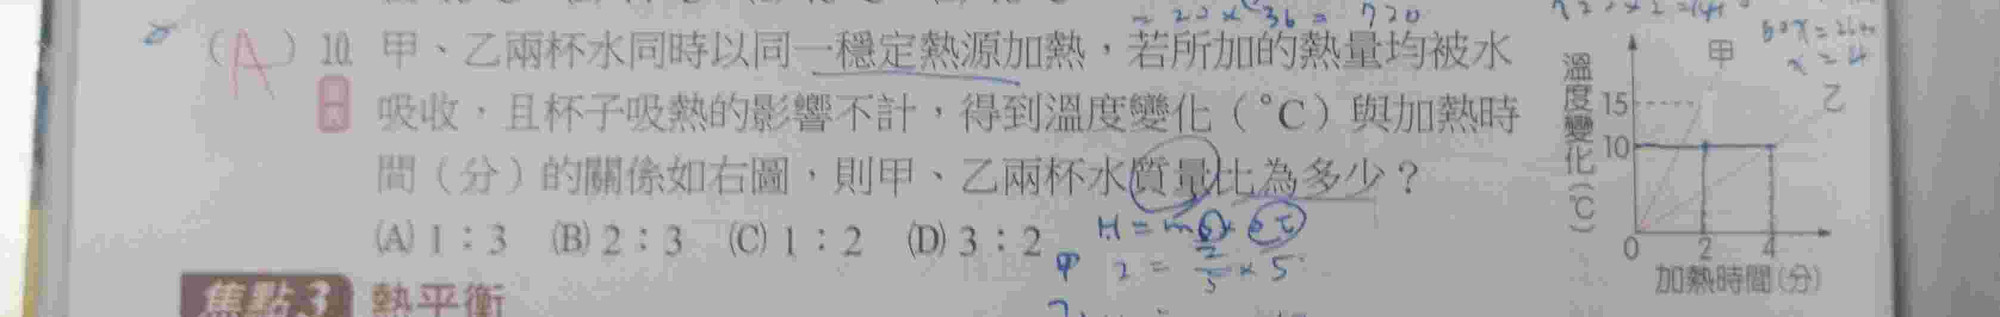 = 20 × 36 = 720
(A) 10. 甲、乙兩杯水同時以同一穩定熱源加熱，若所加的熱量均被水
吸收，且杯子吸熱的影響不計，得到溫度變化（°C）與加熱時
間（分）的關係如右圖，則甲、乙兩杯水質量比為多少？
(A) 1：3 (B) 2：3 (C) 1：2 (D) 3：2
甲
乙
溫度變化(℃)
15
10
0 2 4
加熱時間(分)
焦點3 熱平衡